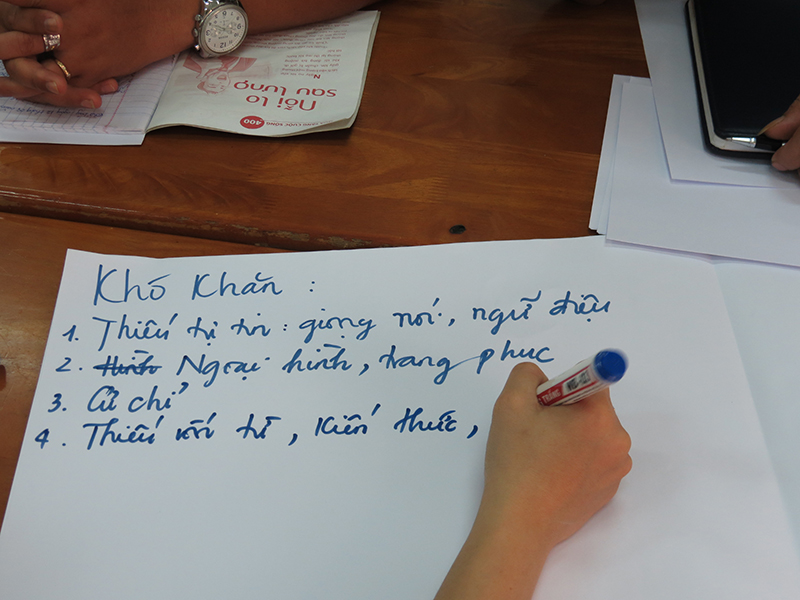 Nỗi lo
sau lưng
400
Khó Khăn :
1. Thiếu tự tin : giọng nói, ngữ điệu
2. Hình Ngoại hình, trang phục
3. Cử chỉ
4. Thiếu vốn từ, Kiến thức,